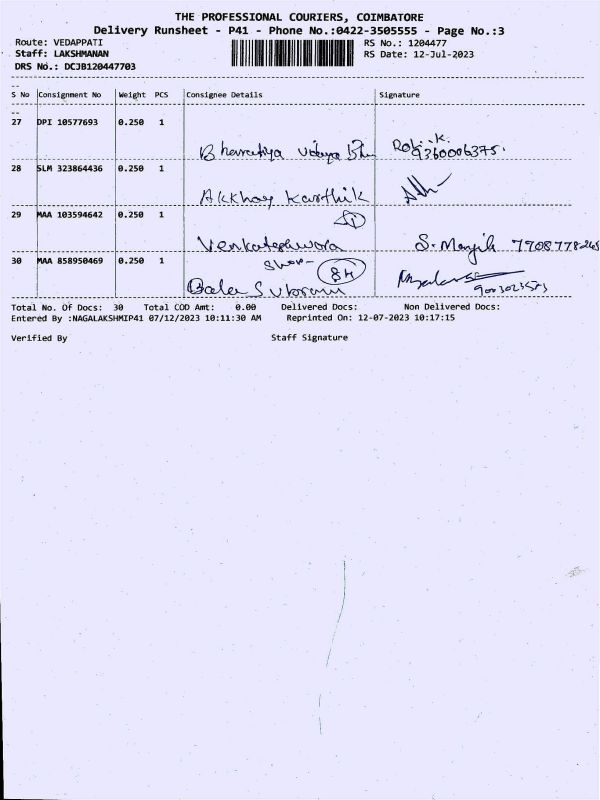 THE PROFESSIONAL COURIERS, COIMBATORE
Delivery Runsheet - P41 - Phone No.:0422-3505555 - Page No.:3
Route: VEDAPPATI RS No.: 1204477
Staff: LAKSHMANAN RS Date: 12-Jul-2023
DRS No.: DCJB120447703
S No Consignment No Weight PCS Consignee Details Signature
27 DPI 10577693 0.250 1
Bharatiya 9360006375.
28 SLM 323864436 0.250 1
Akkhay Karthik
29 MAA 103594642 0.250 1
Venkateshwora S. 7708778268
30 MAA 858950469 0.250 1
84
Bala 9003023573
Total No. Of Docs: 30 Total COD Amt: 0.00 Delivered Docs: Non Delivered Docs:
Entered By :NAGALAKSHMIP41 07/12/2023 10:11:30 AM Reprinted On: 12-07-2023 10:17:15
Verified By Staff Signature